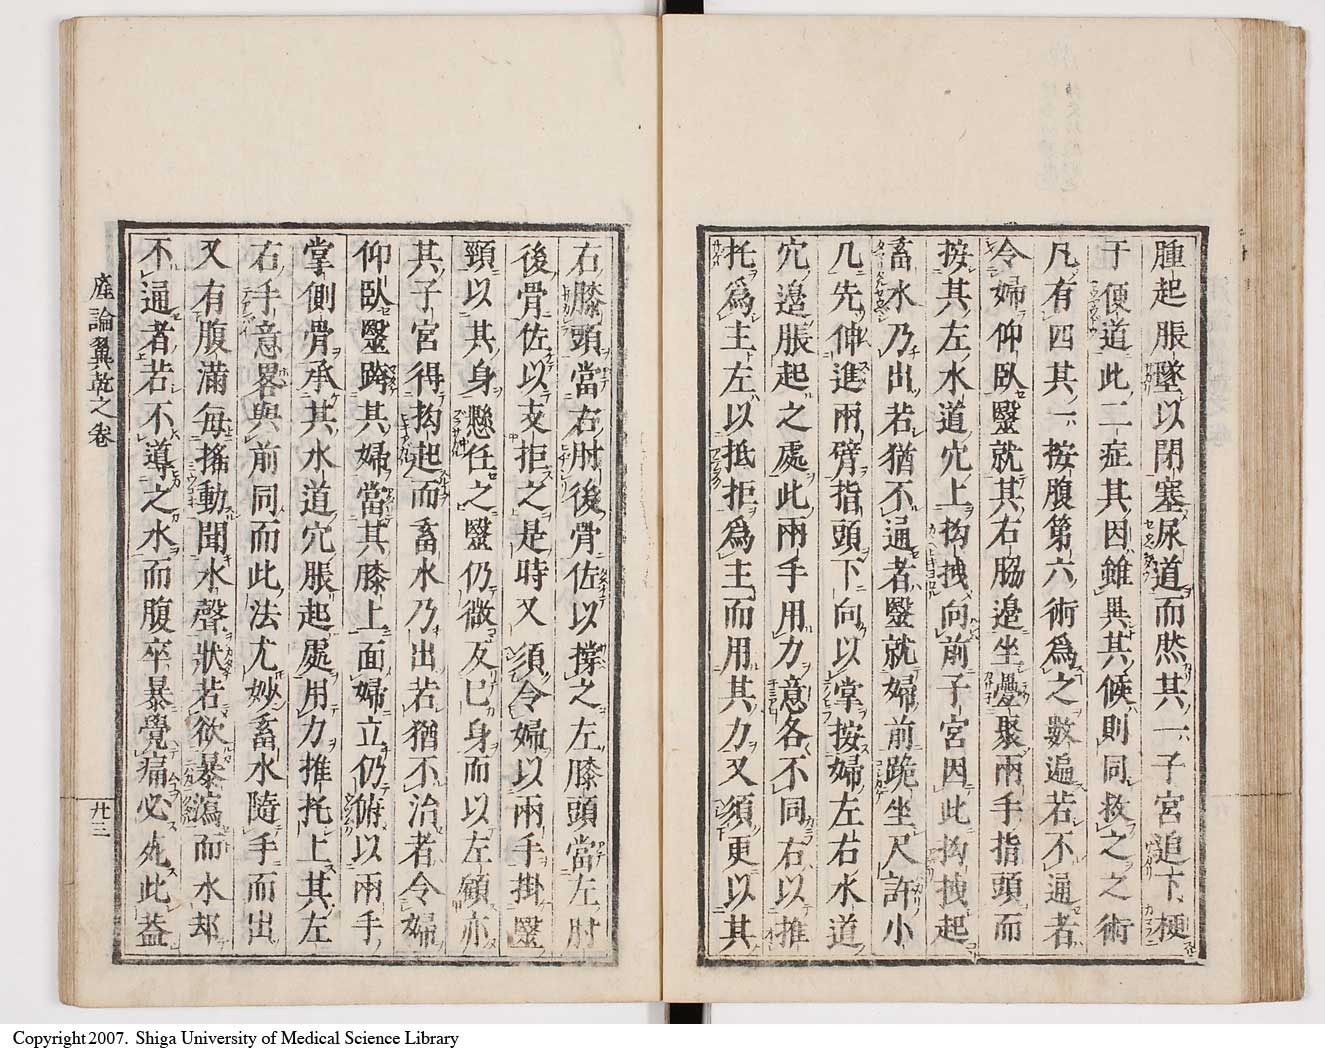 腫起脹墜以閉塞尿道而然其一子宮追下梗
于便道此二症其因雖異其候則同救之之術
凡有四其一按腹第六術為之數遍若不通者
令婦仰臥毉就其右脇邉坐疊聚兩手指頭而
按其左水道穴上抅拽向前子宮因此抅拽起
畜水乃出若猶不通者毉就婦前跪坐尺許小
几先伸進兩臂指頭下向以掌按婦左右水道
穴邉脹起之處此兩手用力意各不同右以推
托為主左以抵拒為主而用其力又須更以其
右膝頭當右肘後骨佐以撐之左膝頭當左肘
後骨佐以支拒之是時又須令婦以兩手掛毉
頸以其身懸任之毉仍微反已身而以左顧亦
其子宮得抅起而畜水乃出若猶不治者令婦
仰臥毉跨其婦當其膝上面婦立仍俯以兩手
掌側骨承其水道穴脹起處用力推托上其左
右手意畧與前同而此法尤妙畜水隨手而出
又有腹滿每搖動聞水聲狀若欲暴瀉而水却
不通者若不導之水而腹卒暴覺痛必死此葢
產論翼乾之卷
廿三
Copyright 2007. Shiga University of Medical Science Library